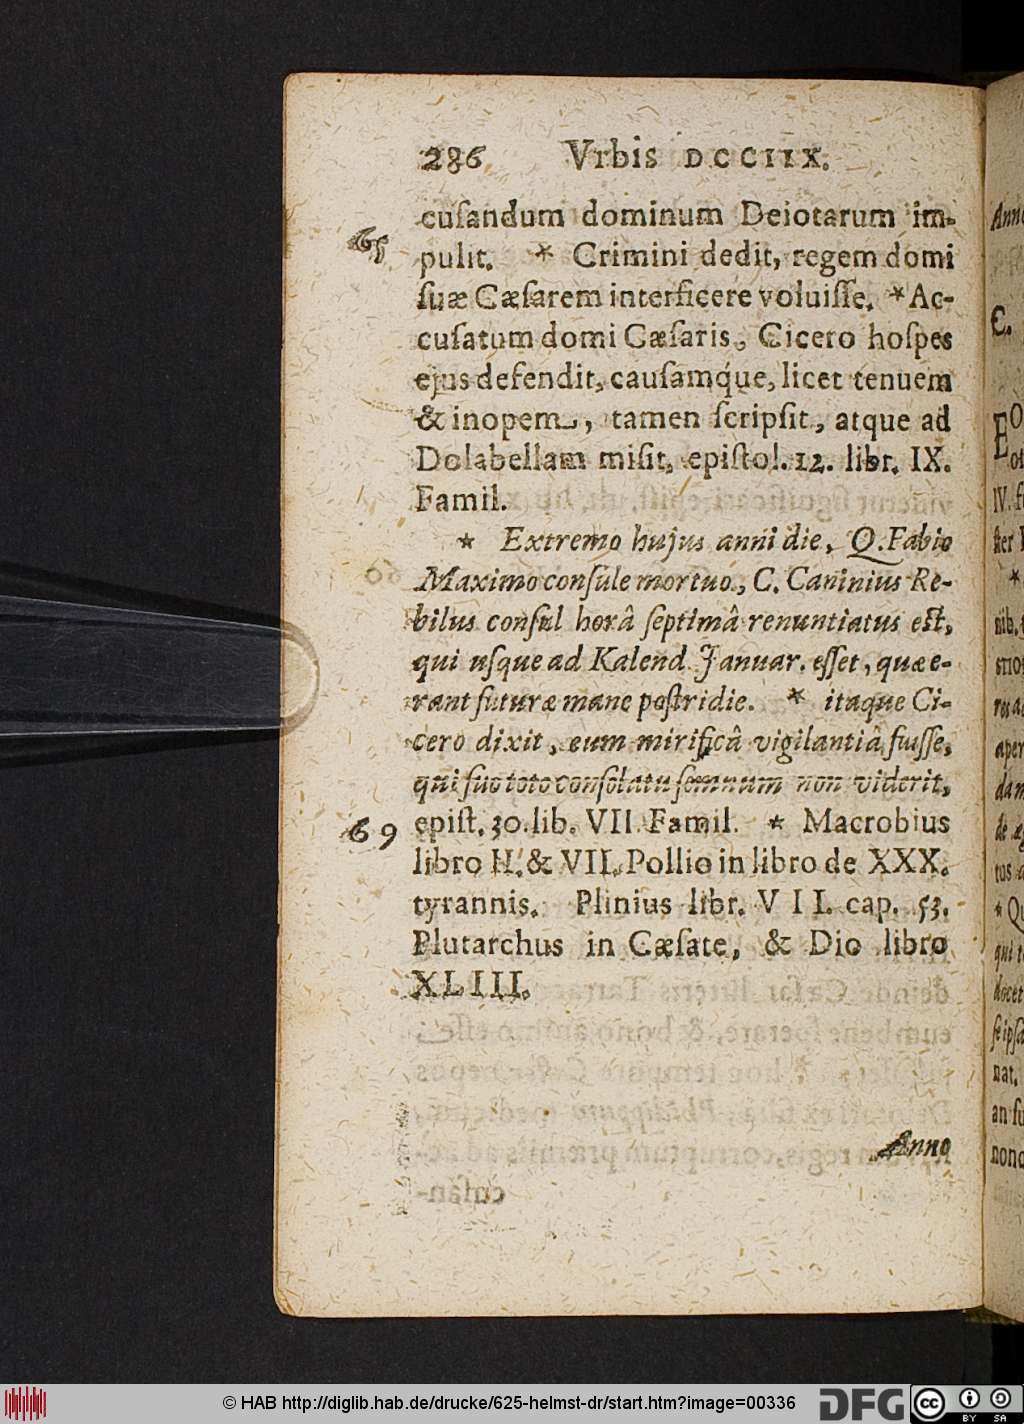 286 Vrbis DCCIIX.
cuſandum dominum Deiotarum im-
65
pulit. * Crimini dedit, regem domi
ſuæ Cæſarem interficere voluiſſe. * Ac-
cuſatum domi Cæſaris, Cicero hoſpes
ejus defendit, cauſamque, licet tenuem
& inopem, tamen ſcripſit, atque ad
Dolabellam miſit, epiſtol. 12. libr. IX.
Famil.
* Extremo hujus anni die, Q. Fabio
Maximo conſule mortuo, C. Caninius Re-
bilus conſul horâ ſeptimâ renuntiatus eſt,
qui uſque ad Kalend. Januar. eſſet, quæ e-
rant futuræ mane poſtridie. * itaque Ci-
cero dixit, eum mirificâ vigilantiâ fuiſſe,
qui ſuo toto conſolatu ſomnum non viderit,
69 epiſt. 30. lib. VII. Famil. * Macrobius
libro II. & VII. Pollio in libro de XXX.
tyrannis. Plinius libr. VII. cap. 53.
Plutarchus in Cæſate, & Dio libro
XLIII.
Anno
Anno
C.
© HAB http://diglib.hab.de/drucke/625-helmst-dr/start.htm?image=00336
DFG
cc BY SA